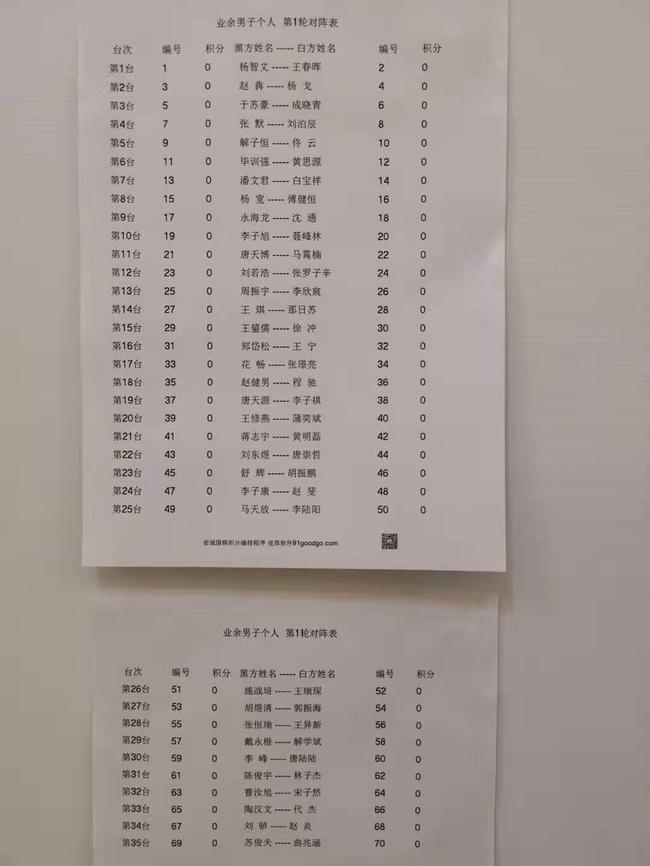 业余男子个人 第1轮对阵表
台次 编号 积分 黑方姓名 ----- 白方姓名 编号 积分
第1台 1 0 杨智文 ----- 王春晖 2 0
第2台 3 0 赵 犇 ----- 杨 戈 4 0
第3台 5 0 于苏豪 ----- 成晓青 6 0
第4台 7 0 张 默 ----- 刘泊辰 8 0
第5台 9 0 解子恒 ----- 佟 云 10 0
第6台 11 0 毕训强 ----- 黄思源 12 0
第7台 13 0 潘文君 ----- 白宝祥 14 0
第8台 15 0 杨 宽 ----- 傅健恒 16 0
第9台 17 0 永海龙 ----- 沈 通 18 0
第10台 19 0 李子旭 ----- 聂峰林 20 0
第11台 21 0 唐天博 ----- 马霄楠 22 0
第12台 23 0 刘若浩 ----- 张罗子辛 24 0
第13台 25 0 周振宇 ----- 李欣宸 26 0
第14台 27 0 王 琪 ----- 那日苏 28 0
第15台 29 0 王鐾儒 ----- 徐 冲 30 0
第16台 31 0 郑岱松 ----- 王 宁 32 0
第17台 33 0 花 畅 ----- 张璟亮 34 0
第18台 35 0 赵健男 ----- 程 驰 36 0
第19台 37 0 唐天源 ----- 李子棋 38 0
第20台 39 0 王修燕 ----- 蒲奕斌 40 0
第21台 41 0 蒋志宇 ----- 黄明磊 42 0
第22台 43 0 刘东煜 ----- 唐崇哲 44 0
第23台 45 0 舒 辉 ----- 胡振鹏 46 0
第24台 47 0 李子康 ----- 赵 斐 48 0
第25台 49 0 马天放 ----- 李陆阳 50 0
围棋积分编排程序 佳弈软件91goodgo.com
业余男子个人 第1轮对阵表
台次 编号 积分 黑方姓名 ----- 白方姓名 编号 积分
第26台 51 0 施战培 ----- 王瑞琛 52 0
第27台 53 0 胡煜清 ----- 郭振海 54 0
第28台 55 0 张恒瑞 ----- 王异新 56 0
第29台 57 0 戴永楷 ----- 解学斌 58 0
第30台 59 0 李 峰 ----- 唐陆陆 60 0
第31台 61 0 陈俊宇 ----- 林子杰 62 0
第32台 63 0 曹汝旭 ----- 宋子然 64 0
第33台 65 0 陶汉文 ----- 代 杰 66 0
第34台 67 0 刘 骄 ----- 赵 炎 68 0
第35台 69 0 苏俊夫 ----- 曲兆涵 70 0